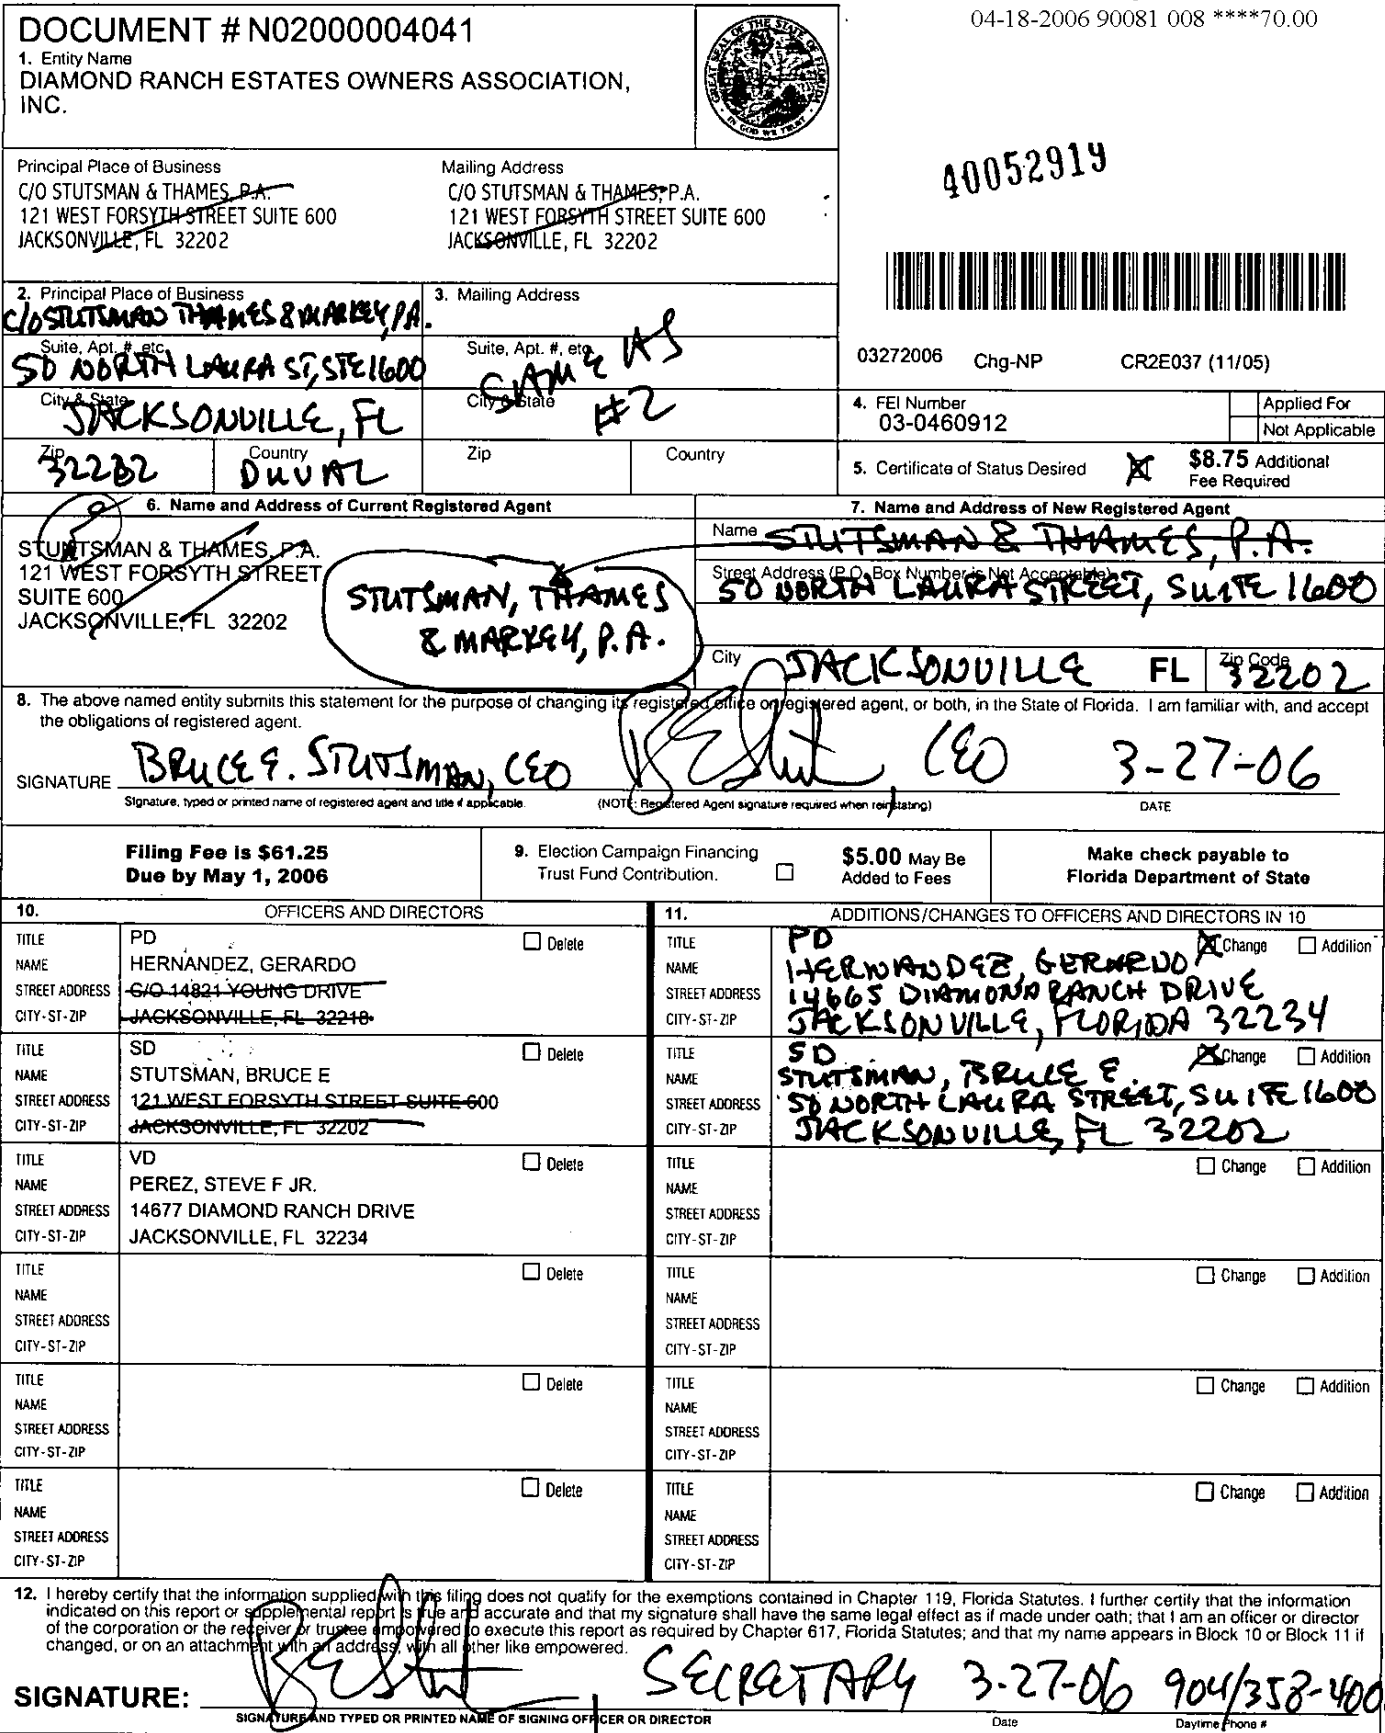 04-18-2006 90081 008 ****70.00
DOCUMENT # N02000004041
1. Entity Name
DIAMOND RANCH ESTATES OWNERS ASSOCIATION,
INC.
GREAT SEAL OF THE STATE OF FLORIDA
IN GOD WE TRUST
40052919
Principal Place of Business
C/O STUTSMAN & THAMES, P.A.
121 WEST FORSYTH STREET SUITE 600
JACKSONVILLE, FL 32202
Mailing Address
C/O STUTSMAN & THAMES, P.A.
121 WEST FORSYTH STREET SUITE 600
JACKSONVILLE, FL 32202
2. Principal Place of Business
C/O STUTSMAN THAMES & MARKEY, P.A.
Suite, Apt. #, etc.
50 NORTH LAURA ST, STE 1600
City & State
JACKSONVILLE, FL
Zip
32202
Country
DUVAL
3. Mailing Address
Suite, Apt. #, etc.
SAME AS
City & State
#2
Zip
Country
03272006 Chg-NP CR2E037 (11/05)
4. FEI Number
03-0460912
Applied For
Not Applicable
5. Certificate of Status Desired X
$8.75 Additional
Fee Required
6. Name and Address of Current Registered Agent
STUNTSMAN & THAMES, P.A.
121 WEST FORSYTH STREET
SUITE 600
JACKSONVILLE, FL 32202
STUTSMAN, THAMES
& MARKEY, P.A.
7. Name and Address of New Registered Agent
Name STUTSMAN & THAMES, P.A.
Street Address (P.O. Box Number is Not Acceptable)
50 NORTH LAURA STREET, SUITE 1600
City JACKSONVILLE FL Zip Code 32202
8. The above named entity submits this statement for the purpose of changing its registered office or registered agent, or both, in the State of Florida. I am familiar with, and accept
the obligations of registered agent.
SIGNATURE BRUCE E. STUTSMAN, CEO CEO 3-27-06
Signature, typed or printed name of registered agent and title if applicable. (NOTE: Registered Agent signature required when reinstating) DATE
Filing Fee is $61.25
Due by May 1, 2006
9. Election Campaign Financing
Trust Fund Contribution.
$5.00 May Be
Added to Fees
Make check payable to
Florida Department of State
10. OFFICERS AND DIRECTORS
TITLE PD Delete
NAME HERNANDEZ, GERARDO
STREET ADDRESS C/O 14821 YOUNG DRIVE
CITY-ST-ZIP JACKSONVILLE, FL 32218
TITLE SD Delete
NAME STUTSMAN, BRUCE E
STREET ADDRESS 121 WEST FORSYTH STREET SUITE 600
CITY-ST-ZIP JACKSONVILLE, FL 32202
TITLE VD Delete
NAME PEREZ, STEVE F JR.
STREET ADDRESS 14677 DIAMOND RANCH DRIVE
CITY-ST-ZIP JACKSONVILLE, FL 32234
TITLE Delete
NAME
STREET ADDRESS
CITY-ST-ZIP
TITLE Delete
NAME
STREET ADDRESS
CITY-ST-ZIP
TITLE Delete
NAME
STREET ADDRESS
CITY-ST-ZIP
11. ADDITIONS/CHANGES TO OFFICERS AND DIRECTORS IN 10
TITLE PD X Change Addition
NAME HERNANDEZ, GERARDO
STREET ADDRESS 14665 DIAMOND RANCH DRIVE
CITY-ST-ZIP JACKSONVILLE, FLORIDA 32234
TITLE SD X Change Addition
NAME STUTSMAN, BRUCE E.
STREET ADDRESS 50 NORTH LAURA STREET, SUITE 1600
CITY-ST-ZIP JACKSONVILLE, FL 32202
TITLE Change Addition
NAME
STREET ADDRESS
CITY-ST-ZIP
TITLE Change Addition
NAME
STREET ADDRESS
CITY-ST-ZIP
TITLE Change Addition
NAME
STREET ADDRESS
CITY-ST-ZIP
TITLE Change Addition
NAME
STREET ADDRESS
CITY-ST-ZIP
12. I hereby certify that the information supplied with this filing does not qualify for the exemptions contained in Chapter 119, Florida Statutes. I further certify that the information
indicated on this report or supplemental report is true and accurate and that my signature shall have the same legal effect as if made under oath; that I am an officer or director
of the corporation or the receiver or trustee empowered to execute this report as required by Chapter 617, Florida Statutes; and that my name appears in Block 10 or Block 11 if
changed, or on an attachment with an address, with all other like empowered.
SIGNATURE: SECRETARY 3-27-06 904/358-400
SIGNATURE AND TYPED OR PRINTED NAME OF SIGNING OFFICER OR DIRECTOR Date Daytime Phone #